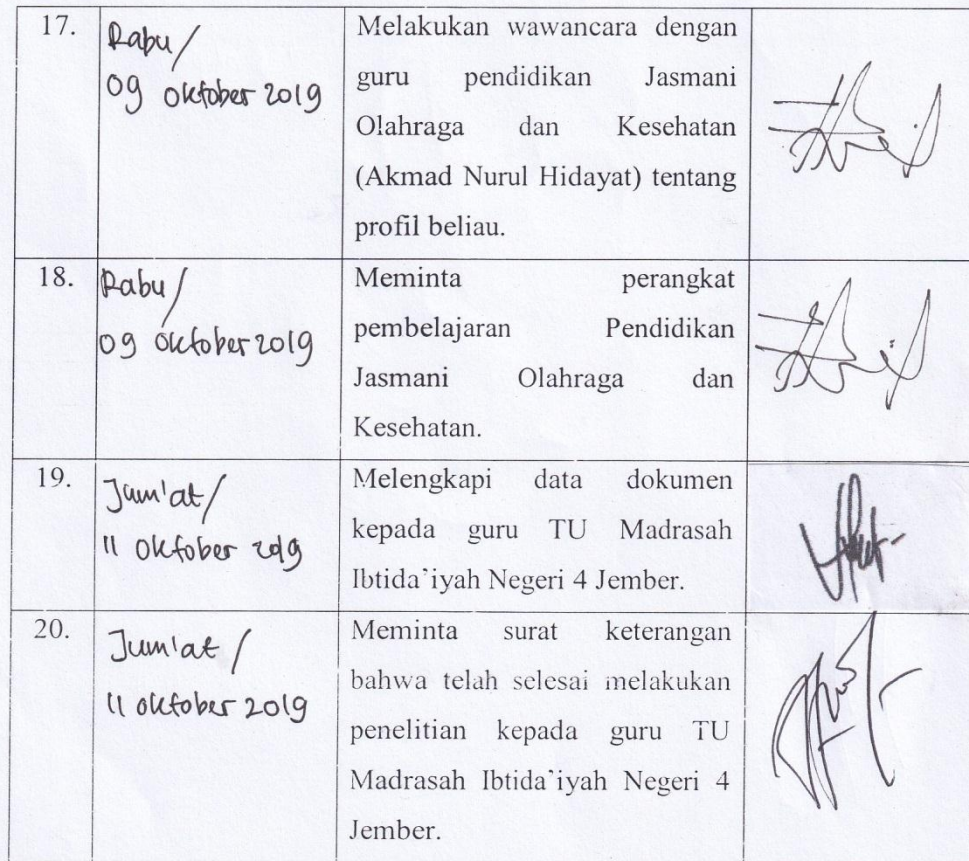 17.
Rabu/
09 oktober 2019
Melakukan wawancara dengan
guru pendidikan Jasmani
Olahraga dan Kesehatan
(Akmad Nurul Hidayat) tentang
profil beliau.
18.
Rabu/
09 oktober 2019
Meminta perangkat
pembelajaran Pendidikan
Jasmani Olahraga dan
Kesehatan.
19.
Jum'at/
11 oktober 2019
Melengkapi data dokumen
kepada guru TU Madrasah
Ibtida'iyah Negeri 4 Jember.
20.
Jum'at/
11 oktober 2019
Meminta surat keterangan
bahwa telah selesai melakukan
penelitian kepada guru TU
Madrasah Ibtida'iyah Negeri 4
Jember.